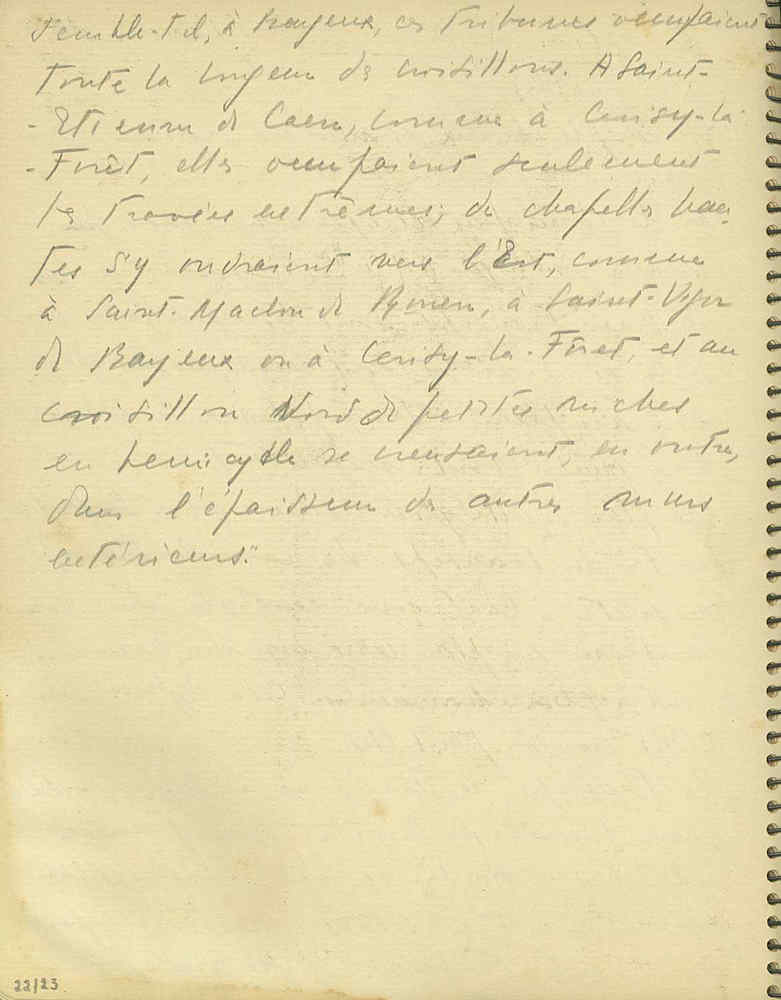 semble-t-il, à Bayeux, ces tribunes occupaient
toute la longueur des croisillons. A Saint-
-Etienne de Caen, comme à Cerisy-la-
-Forêt, elles occupaient seulement
les travées extrêmes; des chapelles hau-
tes s'y ouvraient vers l'Est, comme
à Saint-Maclou de Rouen, à Saint-Vigor
de Bayeux ou à Cerisy-la-Forêt, et au
croisillon Nord de petites niches
en hémicycle se creusaient, en outre,
dans l'épaisseur des autres murs
extérieurs."
22/23